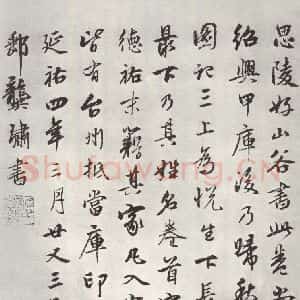 思陵好山谷書此卷
紹興甲庫後乃歸秋
國記三上為悅生下長
最下乃其姓名卷首
德祐末籍其家凡入
皆有台州抵當庫印
延祐四年月廿又三
郵龔璛書
Shufawang.CN